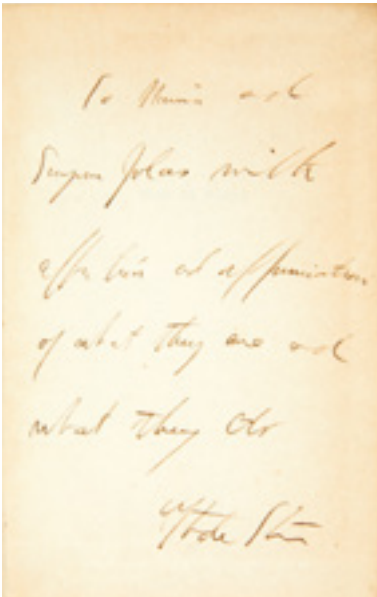 To Maria and
Eugene Jolas with
affection and appreciation
of what they are and
what they do
Gtrde Stein